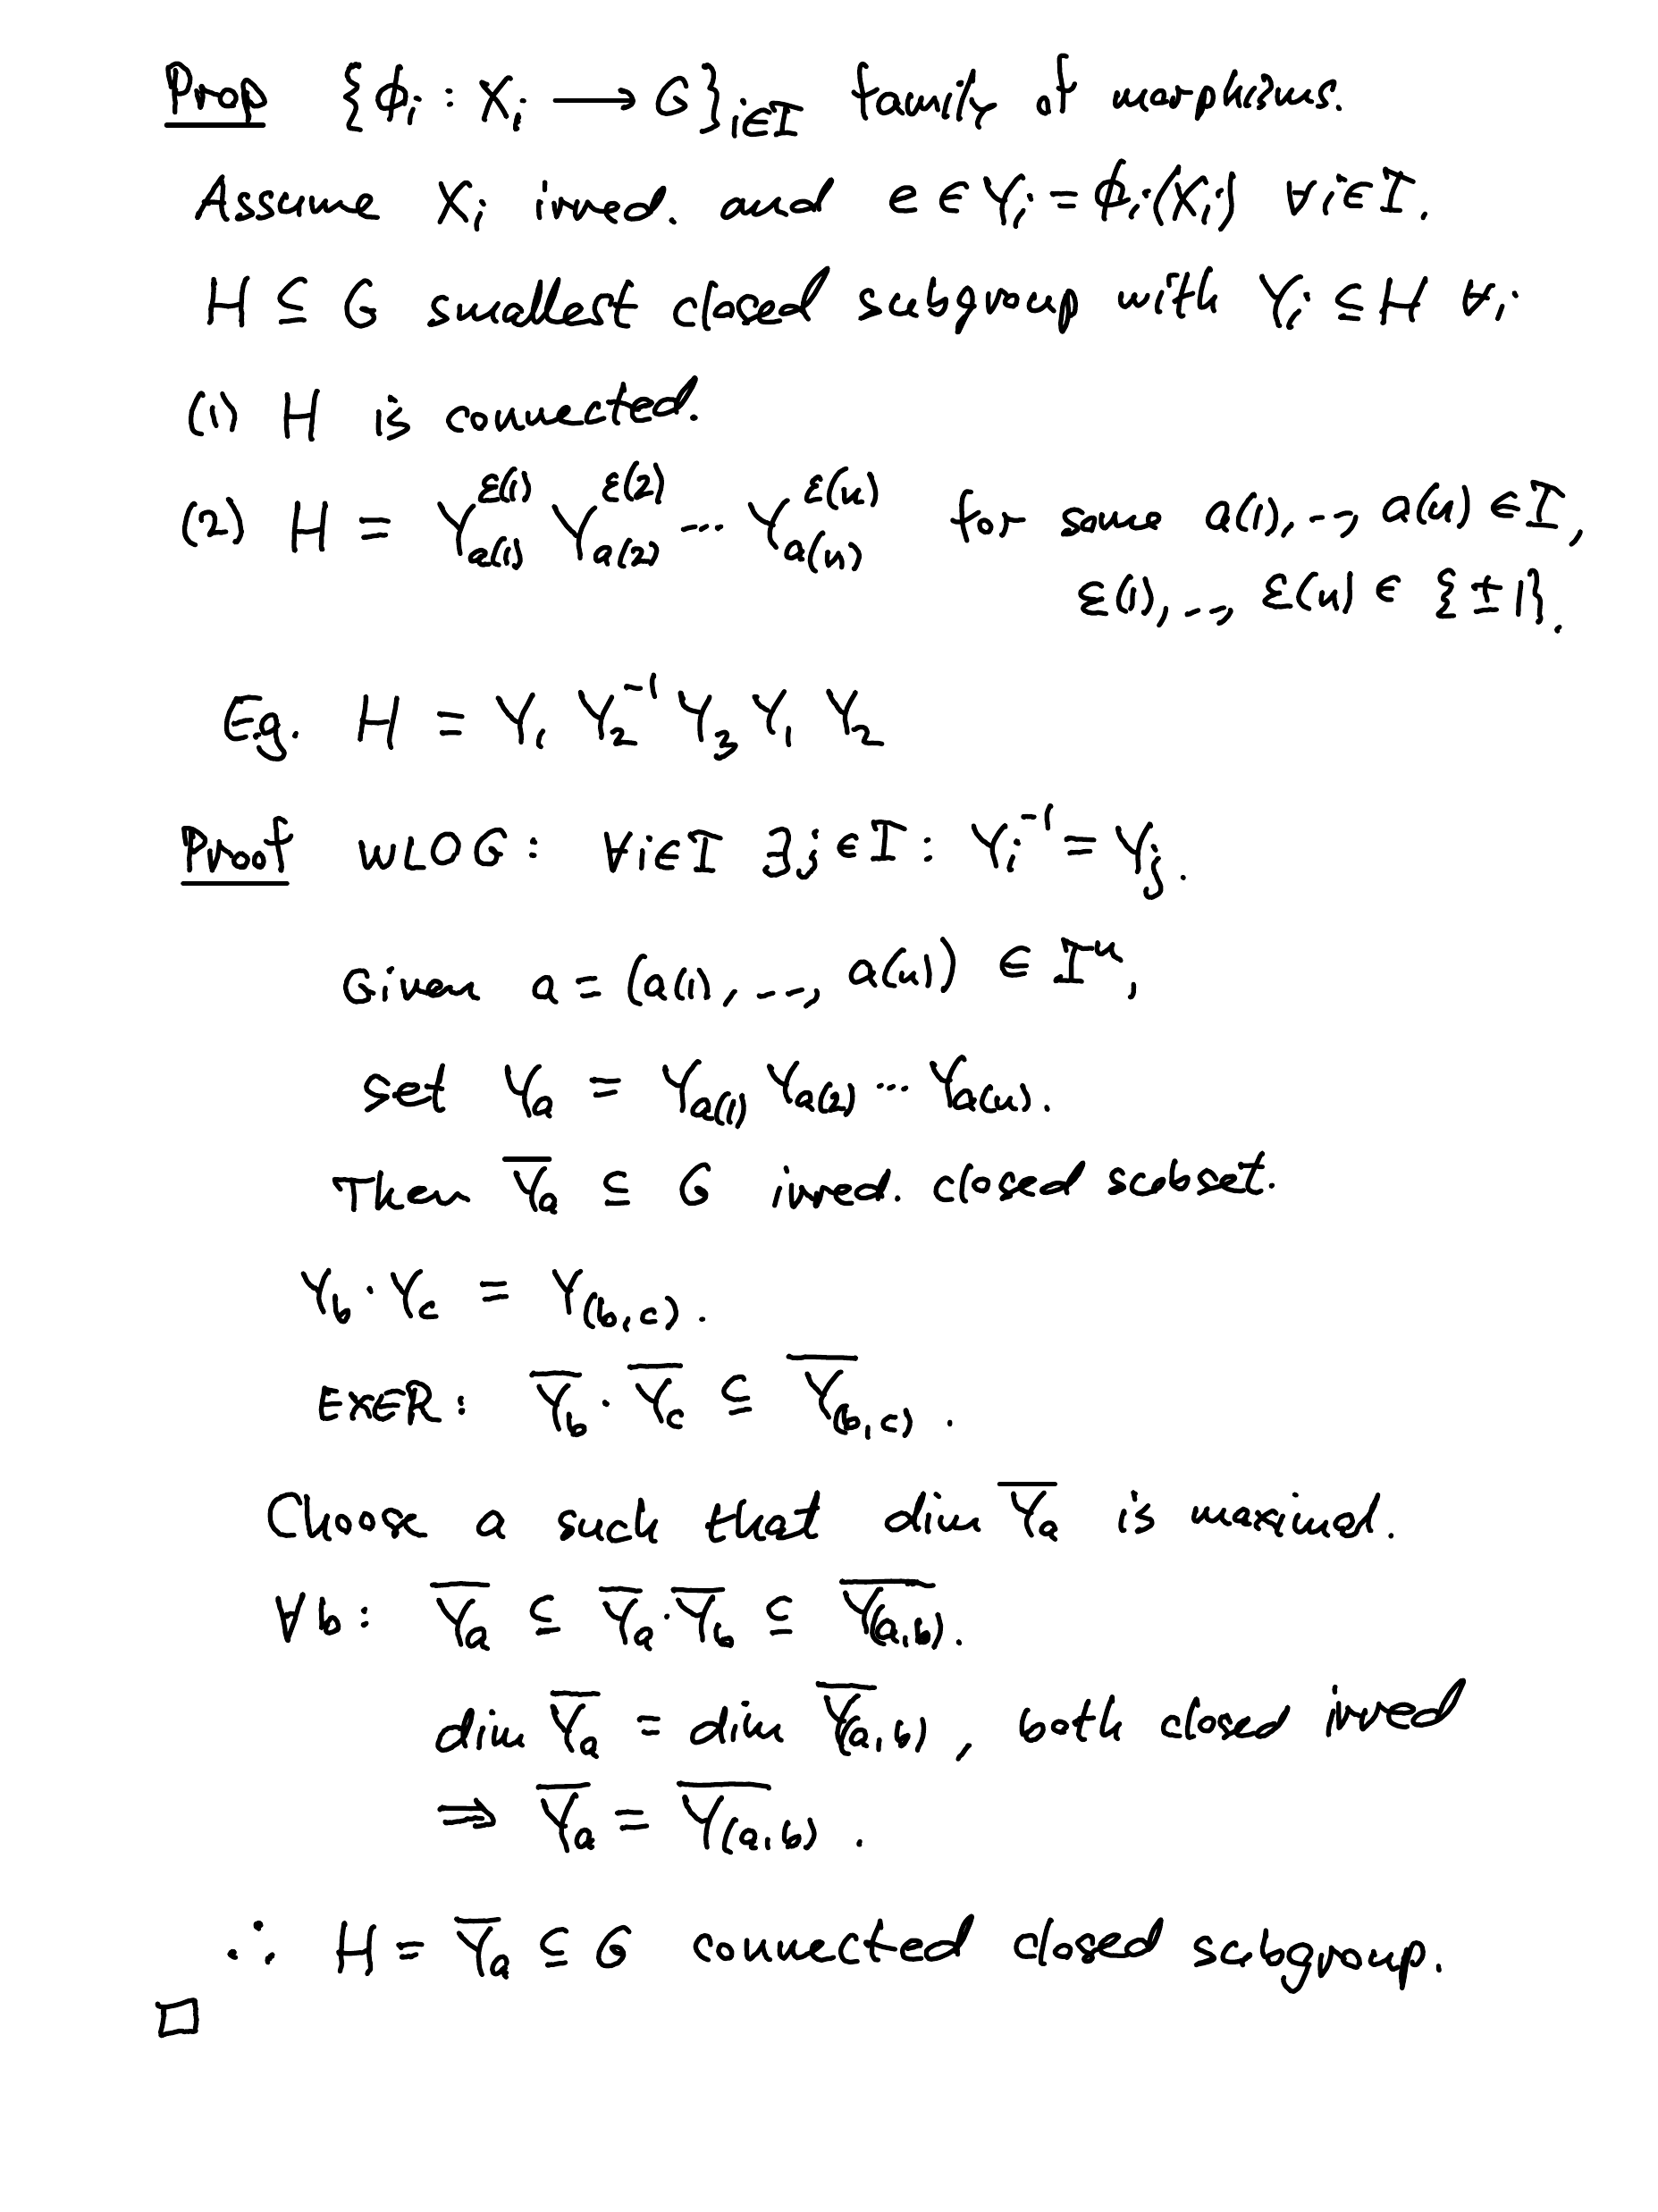 Prop {ϕ_i : X_i ⟶ G}_{i∈I} family of morphisms.
Assume X_i irred. and e ∈ Y_i = ϕ_i(X_i) ∀i∈I.
H ⊆ G smallest closed subgroup with Y_i ⊆ H ∀i
(1) H is connected.
(2) H = Y_{a(1)}^{ε(1)} Y_{a(2)}^{ε(2)} ... Y_{a(n)}^{ε(n)} for some a(1), .., a(n) ∈ I,
ε(1), .., ε(n) ∈ {±1}.
E.g. H = Y_1 Y_2^{-1} Y_3 Y_1 Y_2
Proof WLOG: ∀i∈I ∃j∈I: Y_i^{-1} = Y_j.
Given a = (a(1), .., a(n)) ∈ I^n,
set Y_a = Y_{a(1)} Y_{a(2)} ... Y_{a(n)}.
Then \overline{Y_a} ⊆ G irred. closed subset.
Y_b · Y_c = Y_{(b,c)}.
EXER: \overline{Y_b} · \overline{Y_c} ⊆ \overline{Y_{(b,c)}}.
Choose a such that dim \overline{Y_a} is maximal.
∀b: \overline{Y_a} ⊆ \overline{Y_a} · \overline{Y_b} ⊆ \overline{Y_{(a,b)}}.
dim \overline{Y_a} = dim \overline{Y_{(a,b)}}, both closed irred
⇒ \overline{Y_a} = \overline{Y_{(a,b)}}.
∴ H = \overline{Y_a} ⊆ G connected closed subgroup.
□